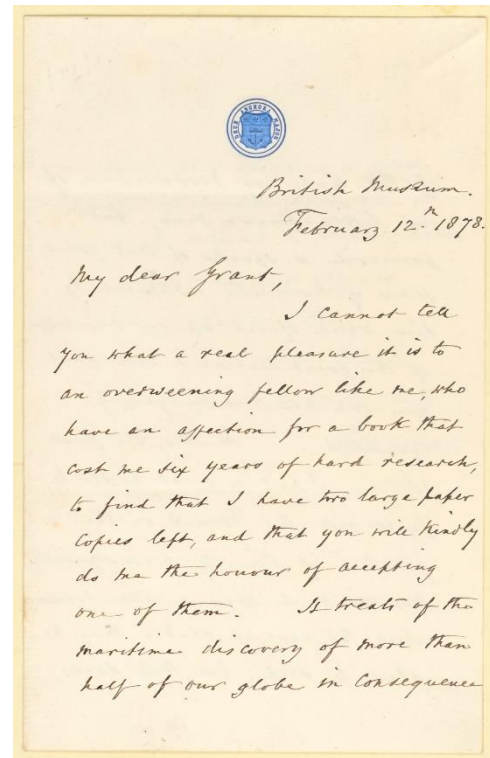 DEUS ANCHORA MAJOR
British Museum.
February 12.th 1878.
My dear Grant,
I cannot tell
you what a real pleasure it is to
an overweening fellow like me, who
have an affection for a book that
cost me six years of hard research,
to find that I have two large paper
copies left, and that you will kindly
do me the honour of accepting
one of them. It treats of the
maritime discovery of more than
half of our globe in consequence